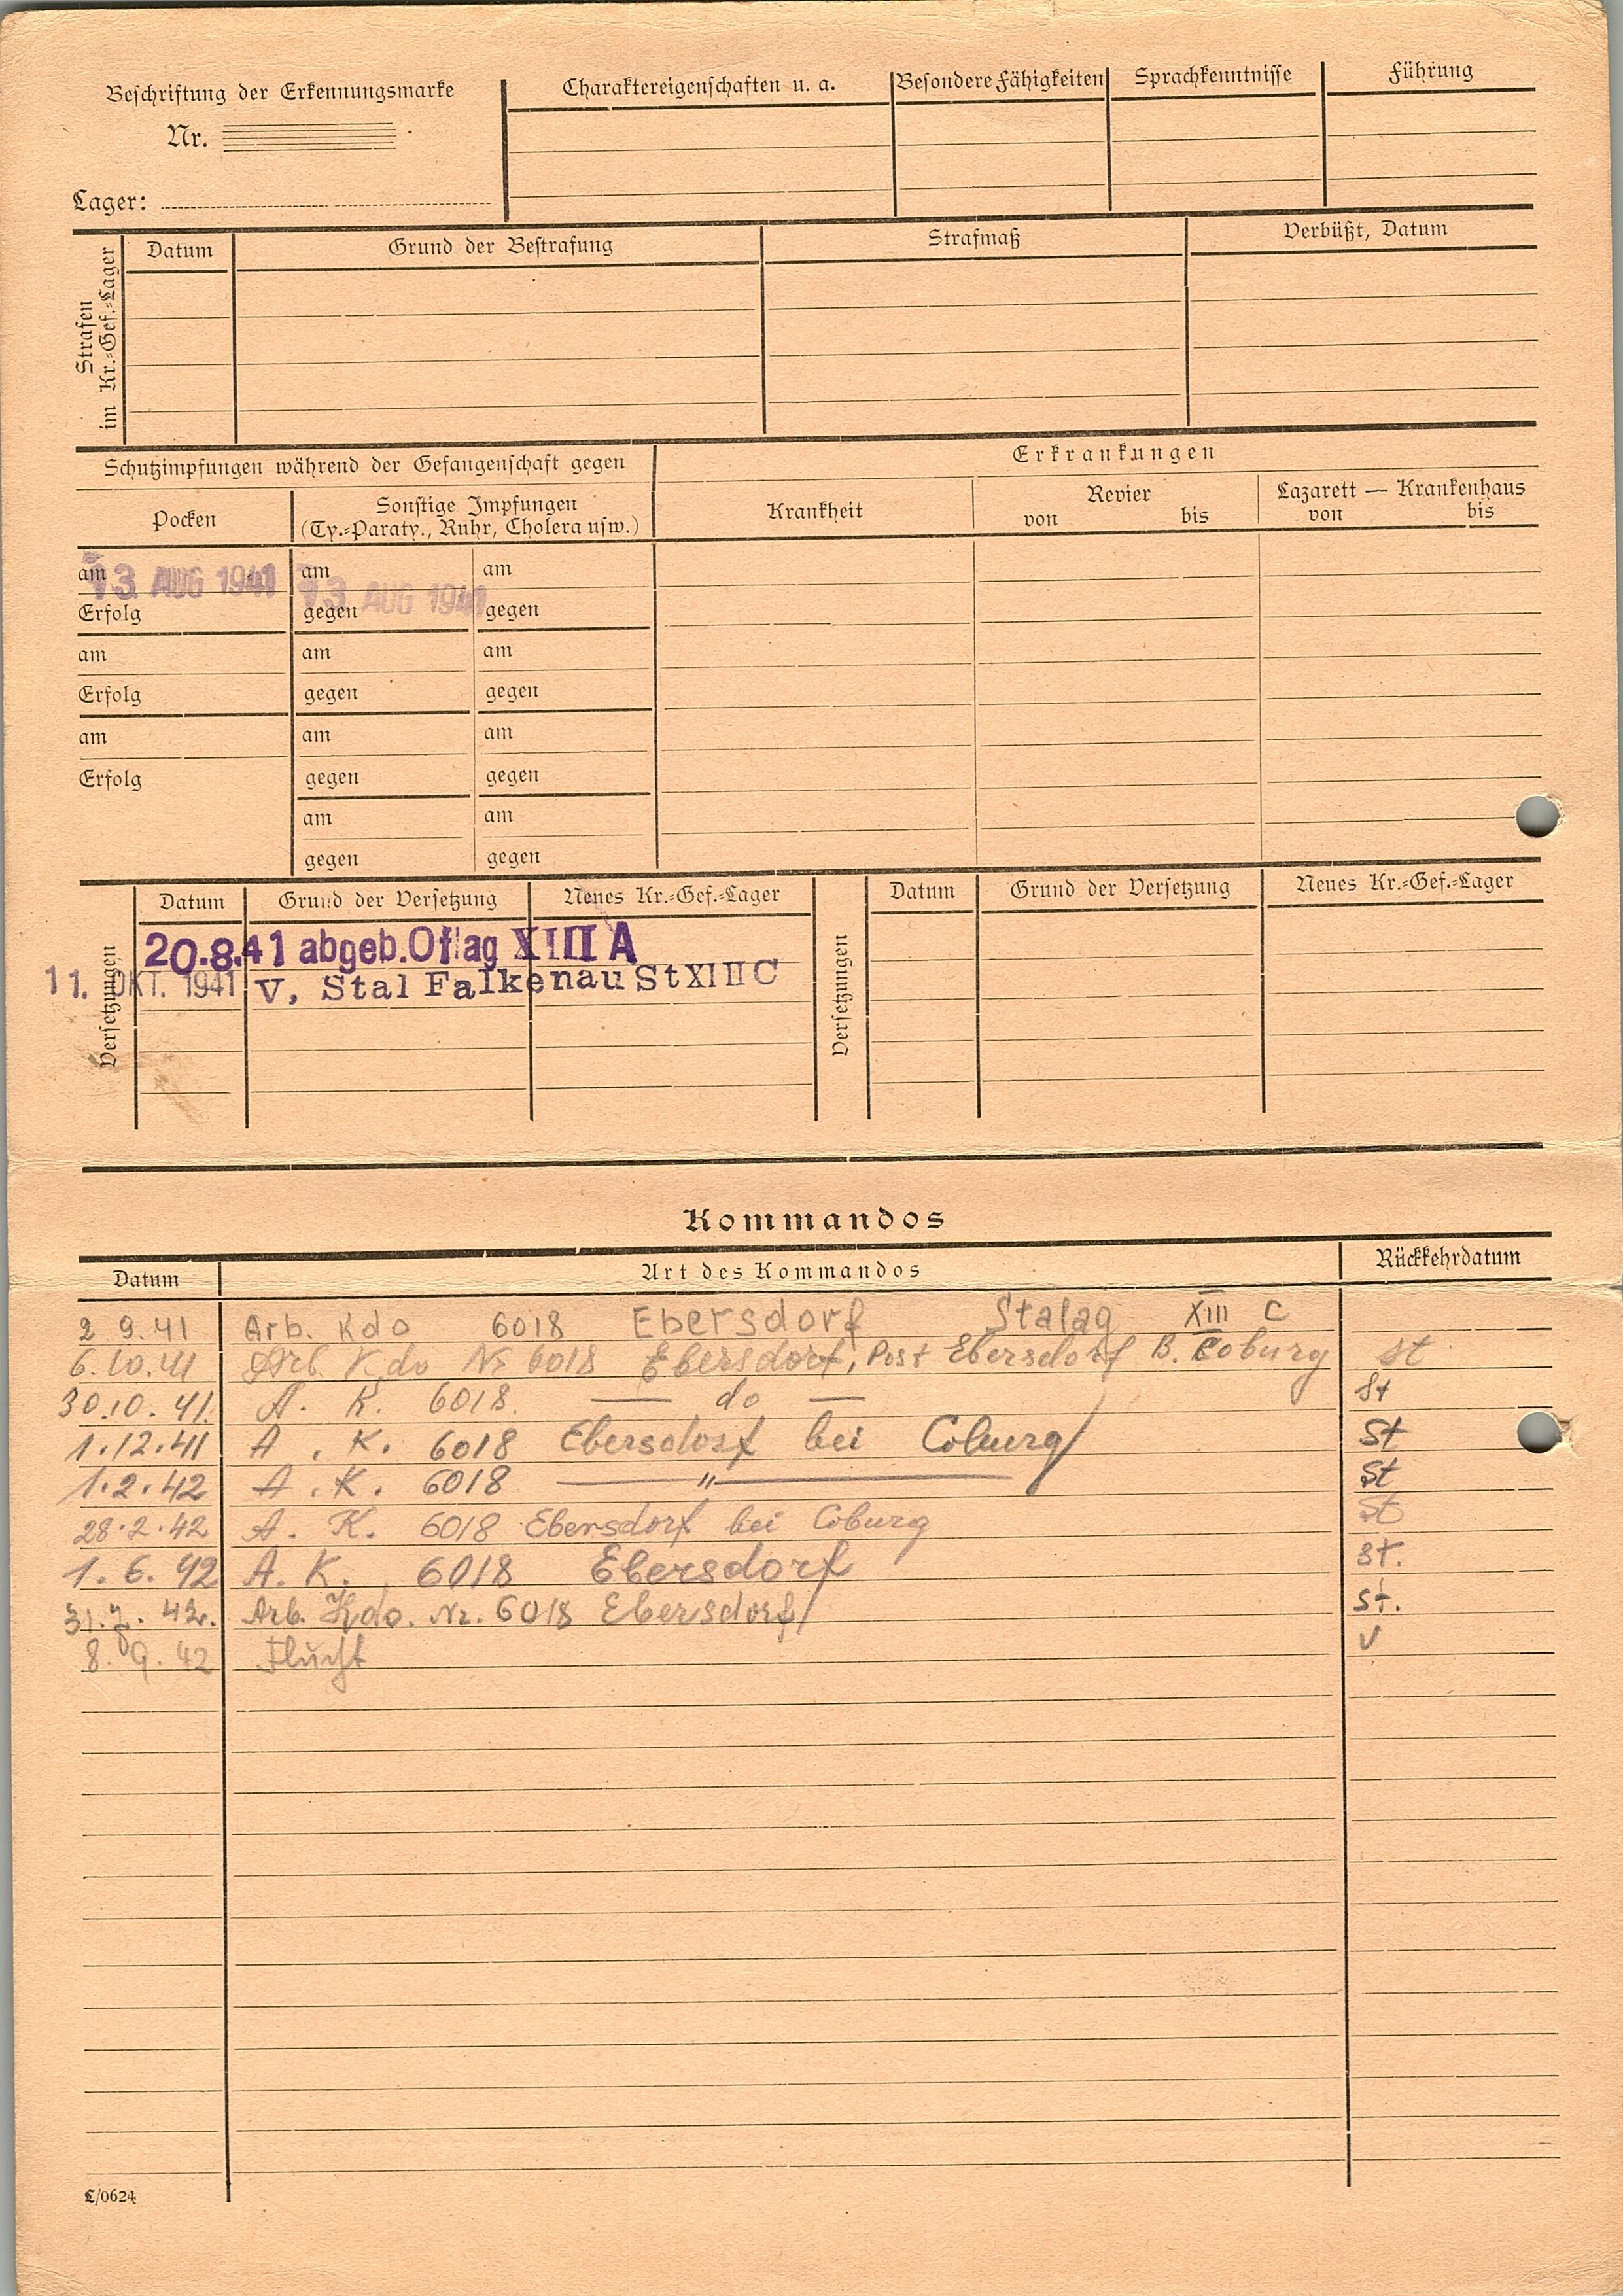 Beschriftung der Erkennungsmarke
Nr.
Lager:
Charaktereigenschaften u. a.
Besondere Fähigkeiten
Sprachkenntnisse
Führung
Strafen
im Kr.-Gef.-Lager
Datum
Grund der Bestrafung
Strafmaß
Verbüßt, Datum
Schutzimpfungen während der Gefangenschaft gegen
Erkrankungen
Pocken
Sonstige Impfungen
(Ty.-Paraty., Ruhr, Cholera usw.)
Krankheit
Revier
von bis
Lazarett — Krankenhaus
von bis
am 13. AUG 1941 am 13 AUG 1941 am
Erfolg gegen gegen
am am am
Erfolg gegen gegen
am am am
Erfolg gegen gegen
am am
gegen gegen
Versetzungen
Datum Grund der Versetzung Neues Kr.-Gef.-Lager
20.8.41 abgeb. Oflag XIII A
11. OKT. 1941 V. Stal Falkenau St XIII C
Versetzungen
Datum Grund der Versetzung Neues Kr.-Gef.-Lager
Kommandos
Datum Art des Kommandos Rückkehrdatum
2 9.41 Arb. Kdo 6018 Ebersdorf Stalag XIII C
6.10.41 Arb. Kdo Nr 6018 Ebersdorf, Post Ebersdorf B. Coburg St
30.10.41. A. K. 6018. — do — St
1.12.41 A. K. 6018 Ebersdorf bei Coburg St
1.2.42 A. K. 6018 — " — St
28.2.42 A. K. 6018 Ebersdorf bei Coburg St
1.6.42 A. K. 6018 Ebersdorf St.
31.7.42. Arb. Kdo. Nr. 6018 Ebersdorf St.
8.9.42 Flucht V
L/0624